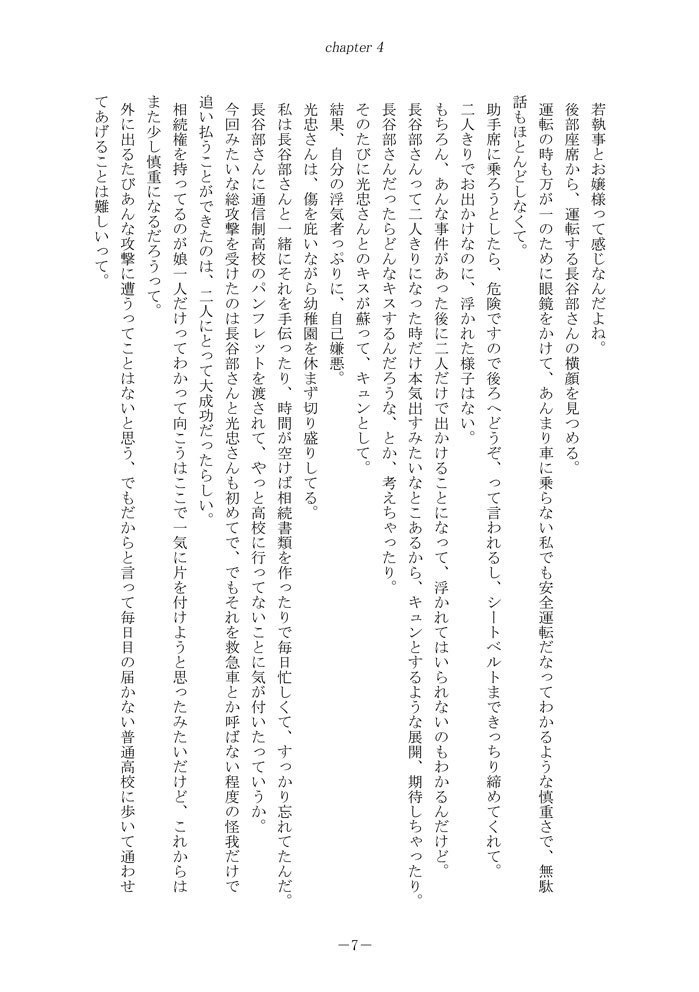 chapter 4
若執事とお嬢様って感じなんだよね。
後部座席から、運転する長谷部さんの横顔を見つめる。
運転の時も万が一のために眼鏡をかけて、あんまり車に乗らない私でも安全運転だなってわかるような慎重さで、無駄
話もほとんどしなくて。
助手席に乗ろうとしたら、危険ですので後ろへどうぞ、って言われるし、シートベルトまできっちり締めてくれて。
二人きりでお出かけなのに、浮かれた様子はない。
もちろん、あんな事件があった後に二人だけで出かけることになって、浮かれてはいられないのもわかるんだけど。
長谷部さんって二人きりになった時だけ本気出すみたいなとこあるから、キュンとするような展開、期待しちゃったり。
長谷部さんだったらどんなキスするんだろうな、とか、考えちゃったり。
そのたびに光忠さんとのキスが蘇って、キュンとして。
結果、自分の浮気者っぷりに、自己嫌悪。
光忠さんは、傷を庇いながら幼稚園を休まず切り盛りしてる。
私は長谷部さんと一緒にそれを手伝ったり、時間が空けば相続書類を作ったりで毎日忙しくて、すっかり忘れてたんだ。
長谷部さんに通信制高校のパンフレットを渡されて、やっと高校に行ってないことに気が付いたたっていうか。
今回みたいな総攻撃を受けたのは長谷部さんと光忠さんも初めてで、でもそれを救急車とか呼ばない程度の怪我だけで
追い払うことができたのは、二人にとって大成功だったらしい。
相続権を持ってるのが娘一人だけってわかって向こうはここで一気に片を付けようと思ったみたいだけど、これからは
また少し慎重になるだろうって。
外に出るたびあんな攻撃に遭うってことはないと思う、でもだからと言って毎日目の届かない普通高校に歩いて通わせ
てあげることは難しいって。
―7―